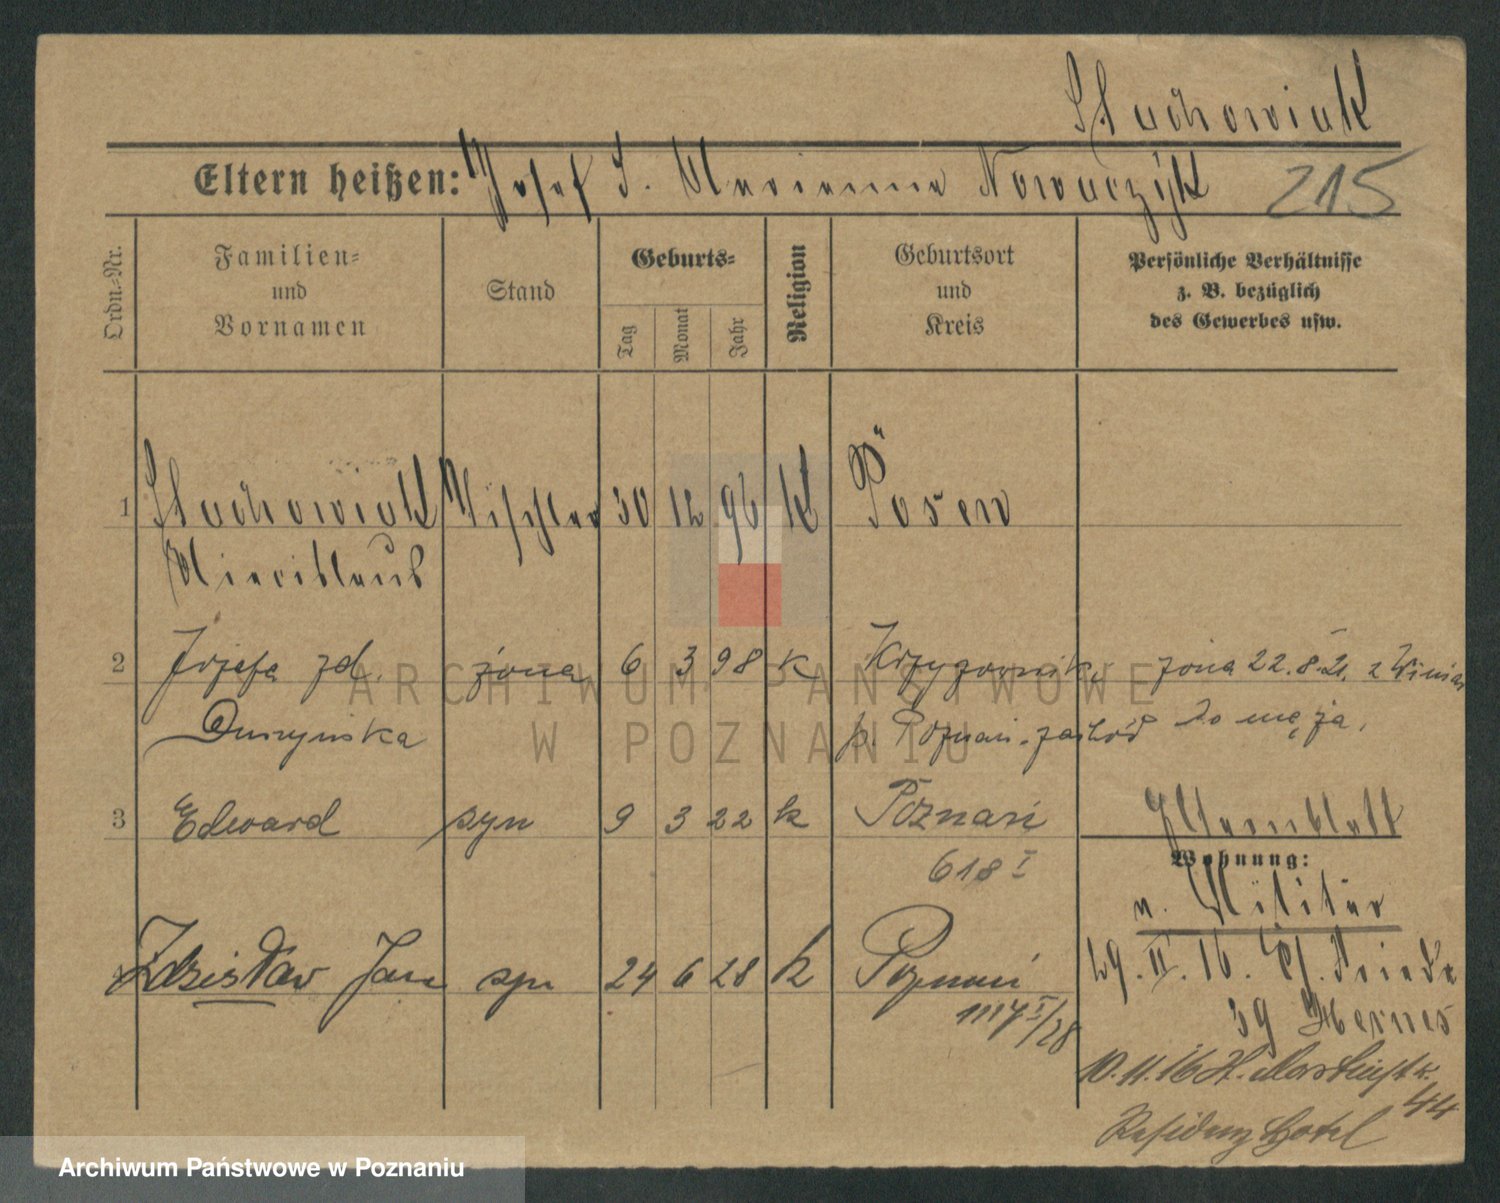 Stachowiak
Eltern heißen: Josef S. Marianna Nowaczyk 215
Ordn.-Nr.
Familien-
und
Vornamen
Stand
Geburts-
Tag
Monat
Jahr
Religion
Geburtsort
und
Kreis
Persönliche Verhältnisse
z. B. bezüglich
des Gewerbes usw.
1 Stachowiak Tischler 30 12 96 K Posen
2 Józefa zd. żona 6 3 98 k żona 22.8.21. z Winiar
Duszyńska p. Poznań-zachód do męża.
3 Edward syn 9 3 22 k Poznań
618 I
Stammblatt
Wohnung:
v. Militär
Zdzisław Jan syn 24 6 28 k Poznań
1117 I/28
29.II.16.
39
10.11.16
44
Residenz Hotel
ARCHIWUM PAŃSTWOWE
W POZNANIU
Archiwum Państwowe w Poznaniu